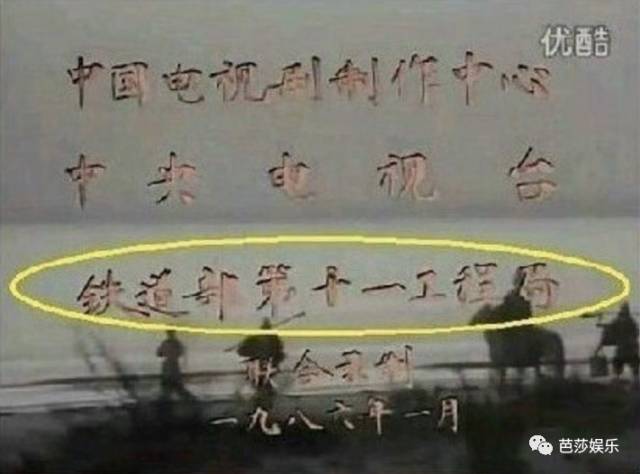 优酷
中国电视剧制作中心
中央电视台
铁道部第十一工程局
联合录制
一九八六年一月
芭莎娱乐